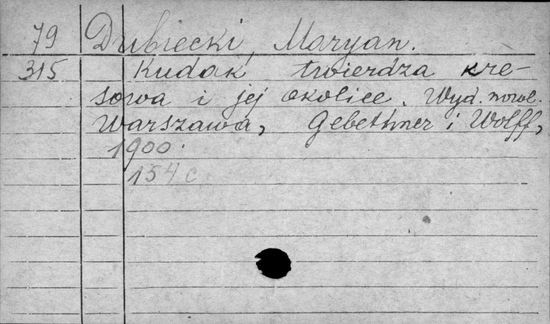 79 Dubiecki, Maryan.
315 Kudak twierdza kre-
sowa i jej okolice. Wyd. nowe.
Warszawa, Gebethner i Wolff,
1900.
154 c